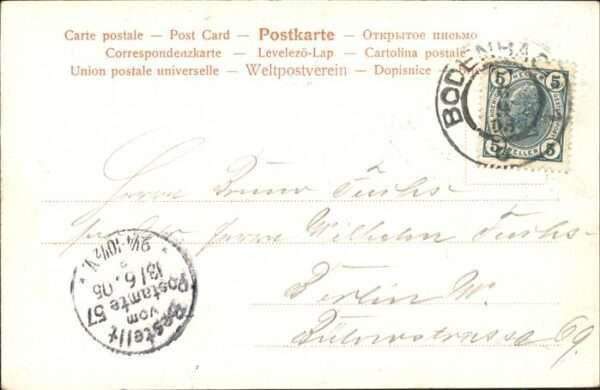 Carte postale — Post Card — Postkarte — Открытое письмо
Correspondenzkarte — Levelező-Lap — Cartolina postale
Union postale universelle — Weltpostverein — Dopisnice
BODENBAC
5 HELLER 5
5 HELLER 5
Herrn Bruno Fuchs
Herrn Wilhelm Fuchs
Berlin W.
Bülowstrasse 69.
Bestellt
vom
Postamte 57
13/6.05
9¼-10½ V.